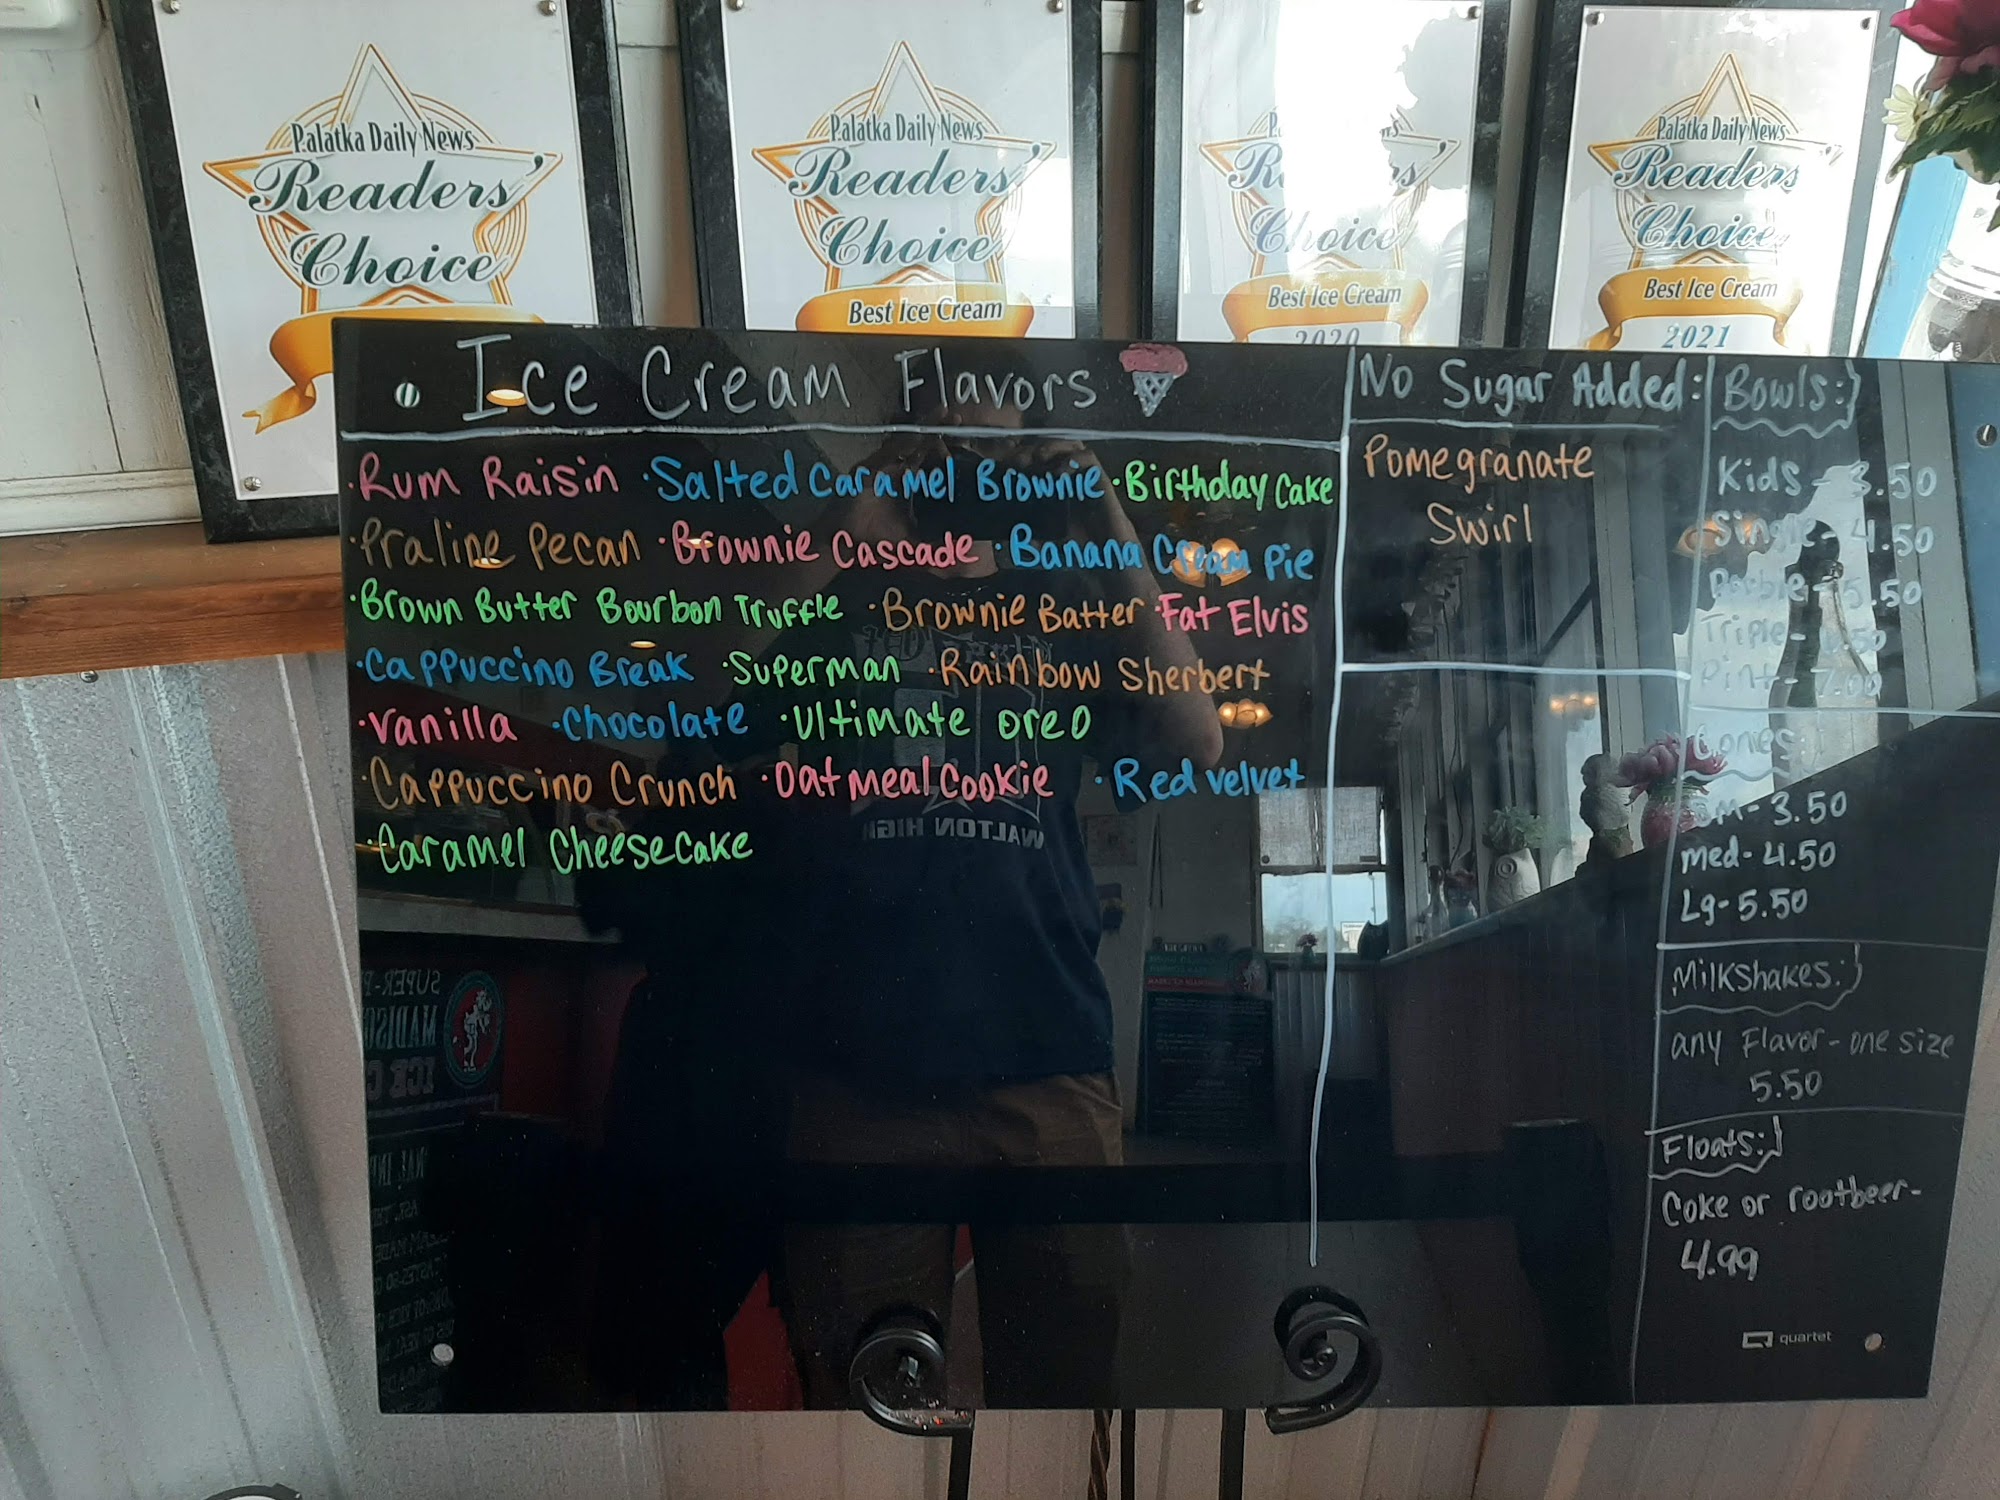 Palatka Daily News
Readers'
Choice
Palatka Daily News
Readers'
Choice
Best Ice Cream
Choice
Best Ice Cream
2020
Palatka Daily News
Readers
Choice
Best Ice Cream
2021
Ice Cream Flavors
·Rum Raisin ·Salted Caramel Brownie ·Birthday Cake
·Praline Pecan ·Brownie Cascade ·Banana Cream Pie
·Brown Butter Bourbon Truffle ·Brownie Batter ·Fat Elvis
·Cappuccino Break ·Superman ·Rainbow Sherbert
·Vanilla ·Chocolate ·Ultimate Oreo
·Cappuccino Crunch ·Oatmeal Cookie ·Red Velvet
·Caramel Cheesecake
No Sugar Added:
Pomegranate
Swirl
Bowls:
Kids - 3.50
Single - 4.50
Double - 5.50
Triple - 6.50
Pint - 7.00
Cones:
Sm - 3.50
med - 4.50
Lg - 5.50
Milkshakes:
any Flavor - one size
5.50
Floats:
Coke or rootbeer -
4.99
quartet
WALTON HIGH
SUPER-P
MADISO
ICE C